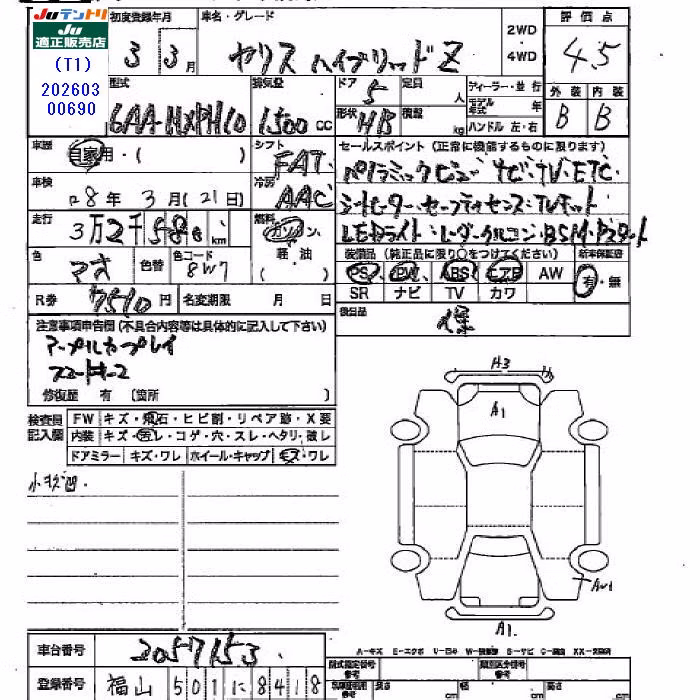 Juテントリ
Ju
適正販売店
(T1)
202603
00690
初度登録年月 車名・グレード 2WD・4WD 評価点
3 3月 ヤリス ハイブリッドZ 4.5
型式 排気量 ドア 定員 ディーラー・並行 外装 内装
6AA-MXPH10 1,500cc 5 人 モデル年式 年 B B
形状 積載 ハンドル 左・右
HB kg
車歴 自家用・( ) シフト FAT
セールスポイント (正常に機能するものに限ります)
パノラミックビュー ナビ・TV・ETC
車検 28年3月(21日) 冷房 AAC
シートヒーター・セーフティセンス・
走行 3万2千 km 燃料 ガソリン・軽油( )
LEDライト・レーダークルコン・BSM・Pスタート
色 色替 色コード 8W7
装備品 (純正品に限り○をつけてください) 新車保証書
PS・PW・ABS・エアB・AW 有・無
SR ナビ TV カワ
R券 7510円 名変期限 月 日
後日品 保
注意事項申告欄 (不具合内容等は具体的に記入して下さい)
アップルカープレイ
修復歴 有 (箇所 )
検査員記入欄
FW キズ・飛石・ヒビ割・リペア跡・X要
内装 キズ・汚レ・コゲ・穴・スレ・ヘタリ・破レ
ドアミラー キズ・ワレ ホイール・キャップ キズ・ワレ
小キズ凹.
A3
A1
A1.
車台番号 2057153
登録番号 福山 501 に 8418
A-キズ E-エクボ U-凹 W-補修跡 S-サビ C-腐食 XX-交換済
型式指定番号 参考
類別区分番号 参考
長さ cm 幅 cm 高さ cm